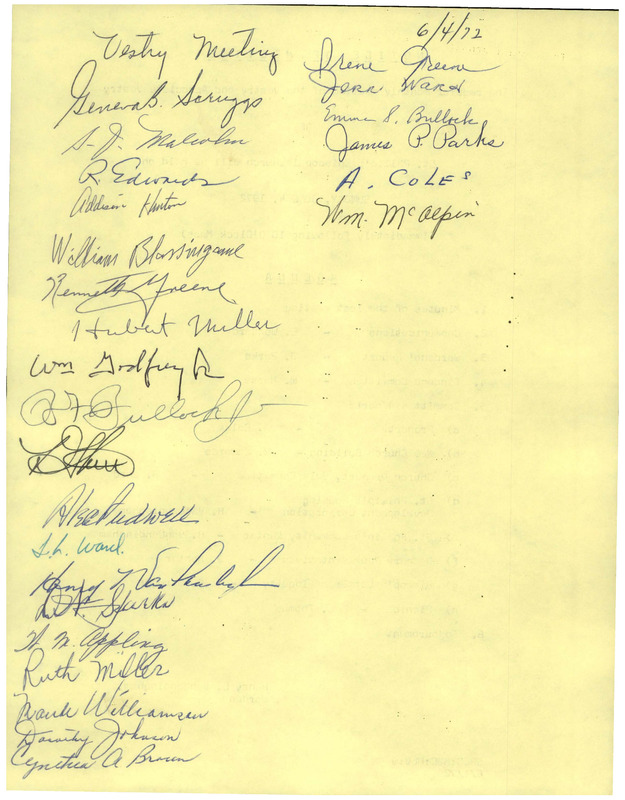 6/4/72
Vestry Meeting
Geneva B. Scruggs
S. J. Malcolm
R. Edwards
Addison Hinton
William Blassingame
Kenneth Greene
Hubert Miller
Wm Godfrey Jr
B F Bullock Jr
Alec Pudwell
L. L. Ward.
Henry
Sparks
H. M. Appling
Ruth Miller
Williamson
Dorothy Johnson
Cynthia A Brown
Irene Greene
Jerr Ward
Emma S. Bullock
James P. Parks
A. COLES
Wm. McAlpin